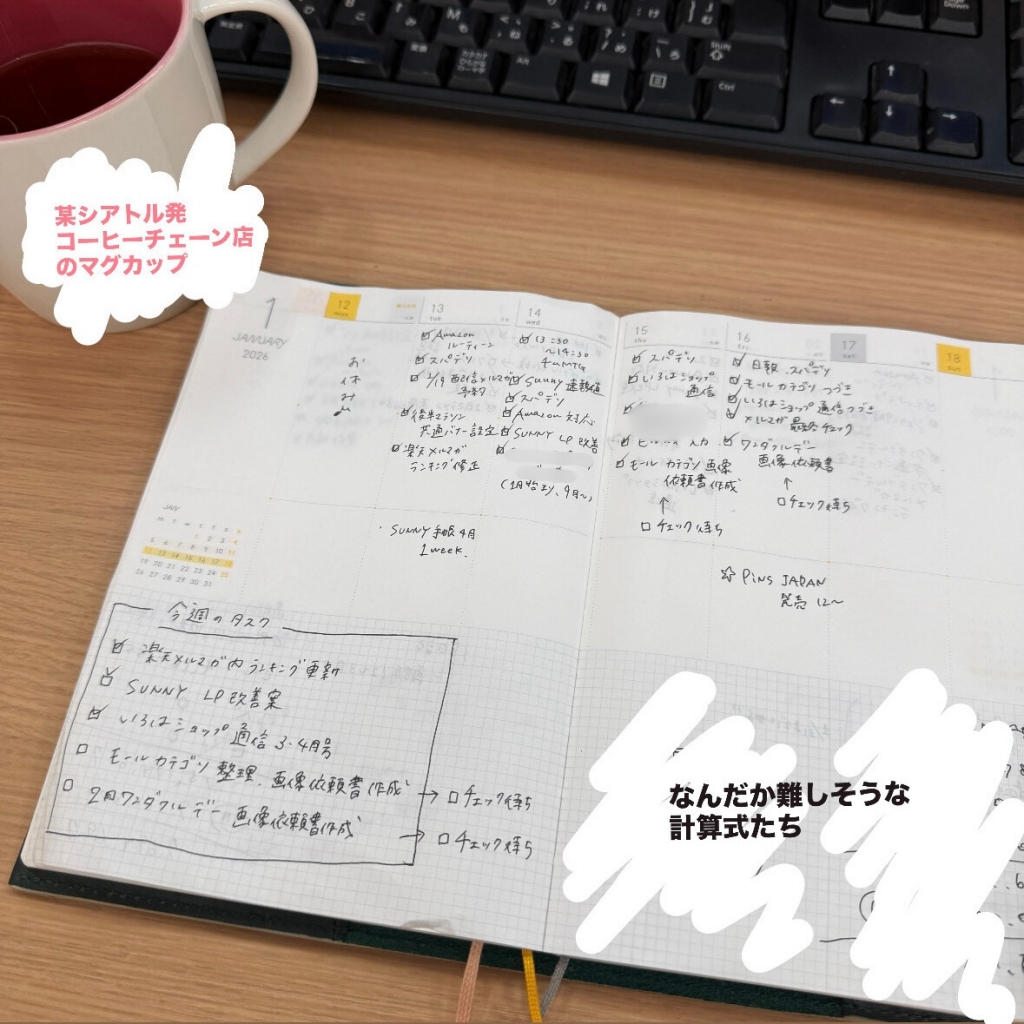 某シアトル発
コーヒーチェーン店
のマグカップ
1
JANUARY
2026
12
お
休
み
♪
13
tue
Amazon
ルーティーン
スパデリ
2/19 配信メルマガ
予約
後半マラソン
共通バナー設定
楽天メルマガ
ランキング修正
14
wed
13:30
~14:30
4uMTG
Sunny 速報値
スパデリ
Amazon 対応
SUNNY LP 改善
(1月始まり、4月~)
15
thu
スパデリ
いろはショップ
通信
入力
モール カテゴリ 画像
依頼書作成
↑
チェック待ち
16
fri
日報 スパデリ
モールカテゴリ つづき
いろはショップ通信つづき
メルマガ 最終チェック
ワンダフルデー
画像依頼書
↑
チェック待ち
17
sat
18
sun
SUNNY 手帳 4月
1 week
☆ PiNS JAPAN
発売 12~
JAN
M T W T F S S
1 2 3 4
5 6 7 8 9 10 11
12 13 14 15 16 17 18
19 20 21 22 23 24 25
26 27 28 29 30 31
今週のタスク
楽天メルマガ内ランキング更新
SUNNY LP 改善案
いろはショップ通信 3・4月号
モールカテゴリ整理、画像依頼書作成 → チェック待ち
2月ワンダフルデー 画像依頼書作成 → チェック待ち
なんだか難しそうな
計算式たち